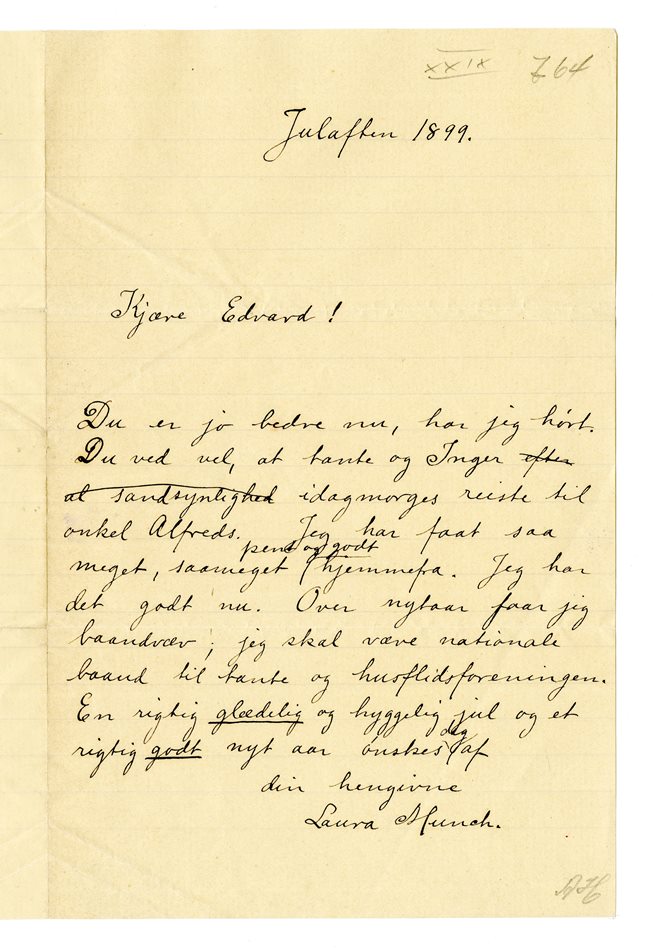 XXIX Z 64
Julaften 1899.
Kjære Edvard!
Du er jo bedre nu, har jeg hørt.
Du ved vel, at tante og Inger efter
al sandsynlighed idagmorges reiste til
onkel Alfreds. Jeg har faat saa
pent og godt
meget, saameget hjemmefra. Jeg har
det godt nu. Over nytaar faar jeg
baandvæv; jeg skal væve nationale
baand til tante og husflidsforeningen.
En rigtig glædelig og hyggelig jul og et
dig
rigtig godt nyt aar ønskes af
din hengivne
Laura Munch.